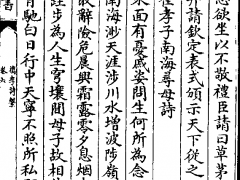 欲坐以不敬禮臣請曰草茅
并請欽定表式頒示天下從之
孝子南海尋母詩
來面有憂戚姿問生何所為念
南海渺天涯涉川水增波陟嶺
敢辭險危晨興霜露零夕息烟
步為人生穹壤間母子故相
有馳白日行中天寧不照所私